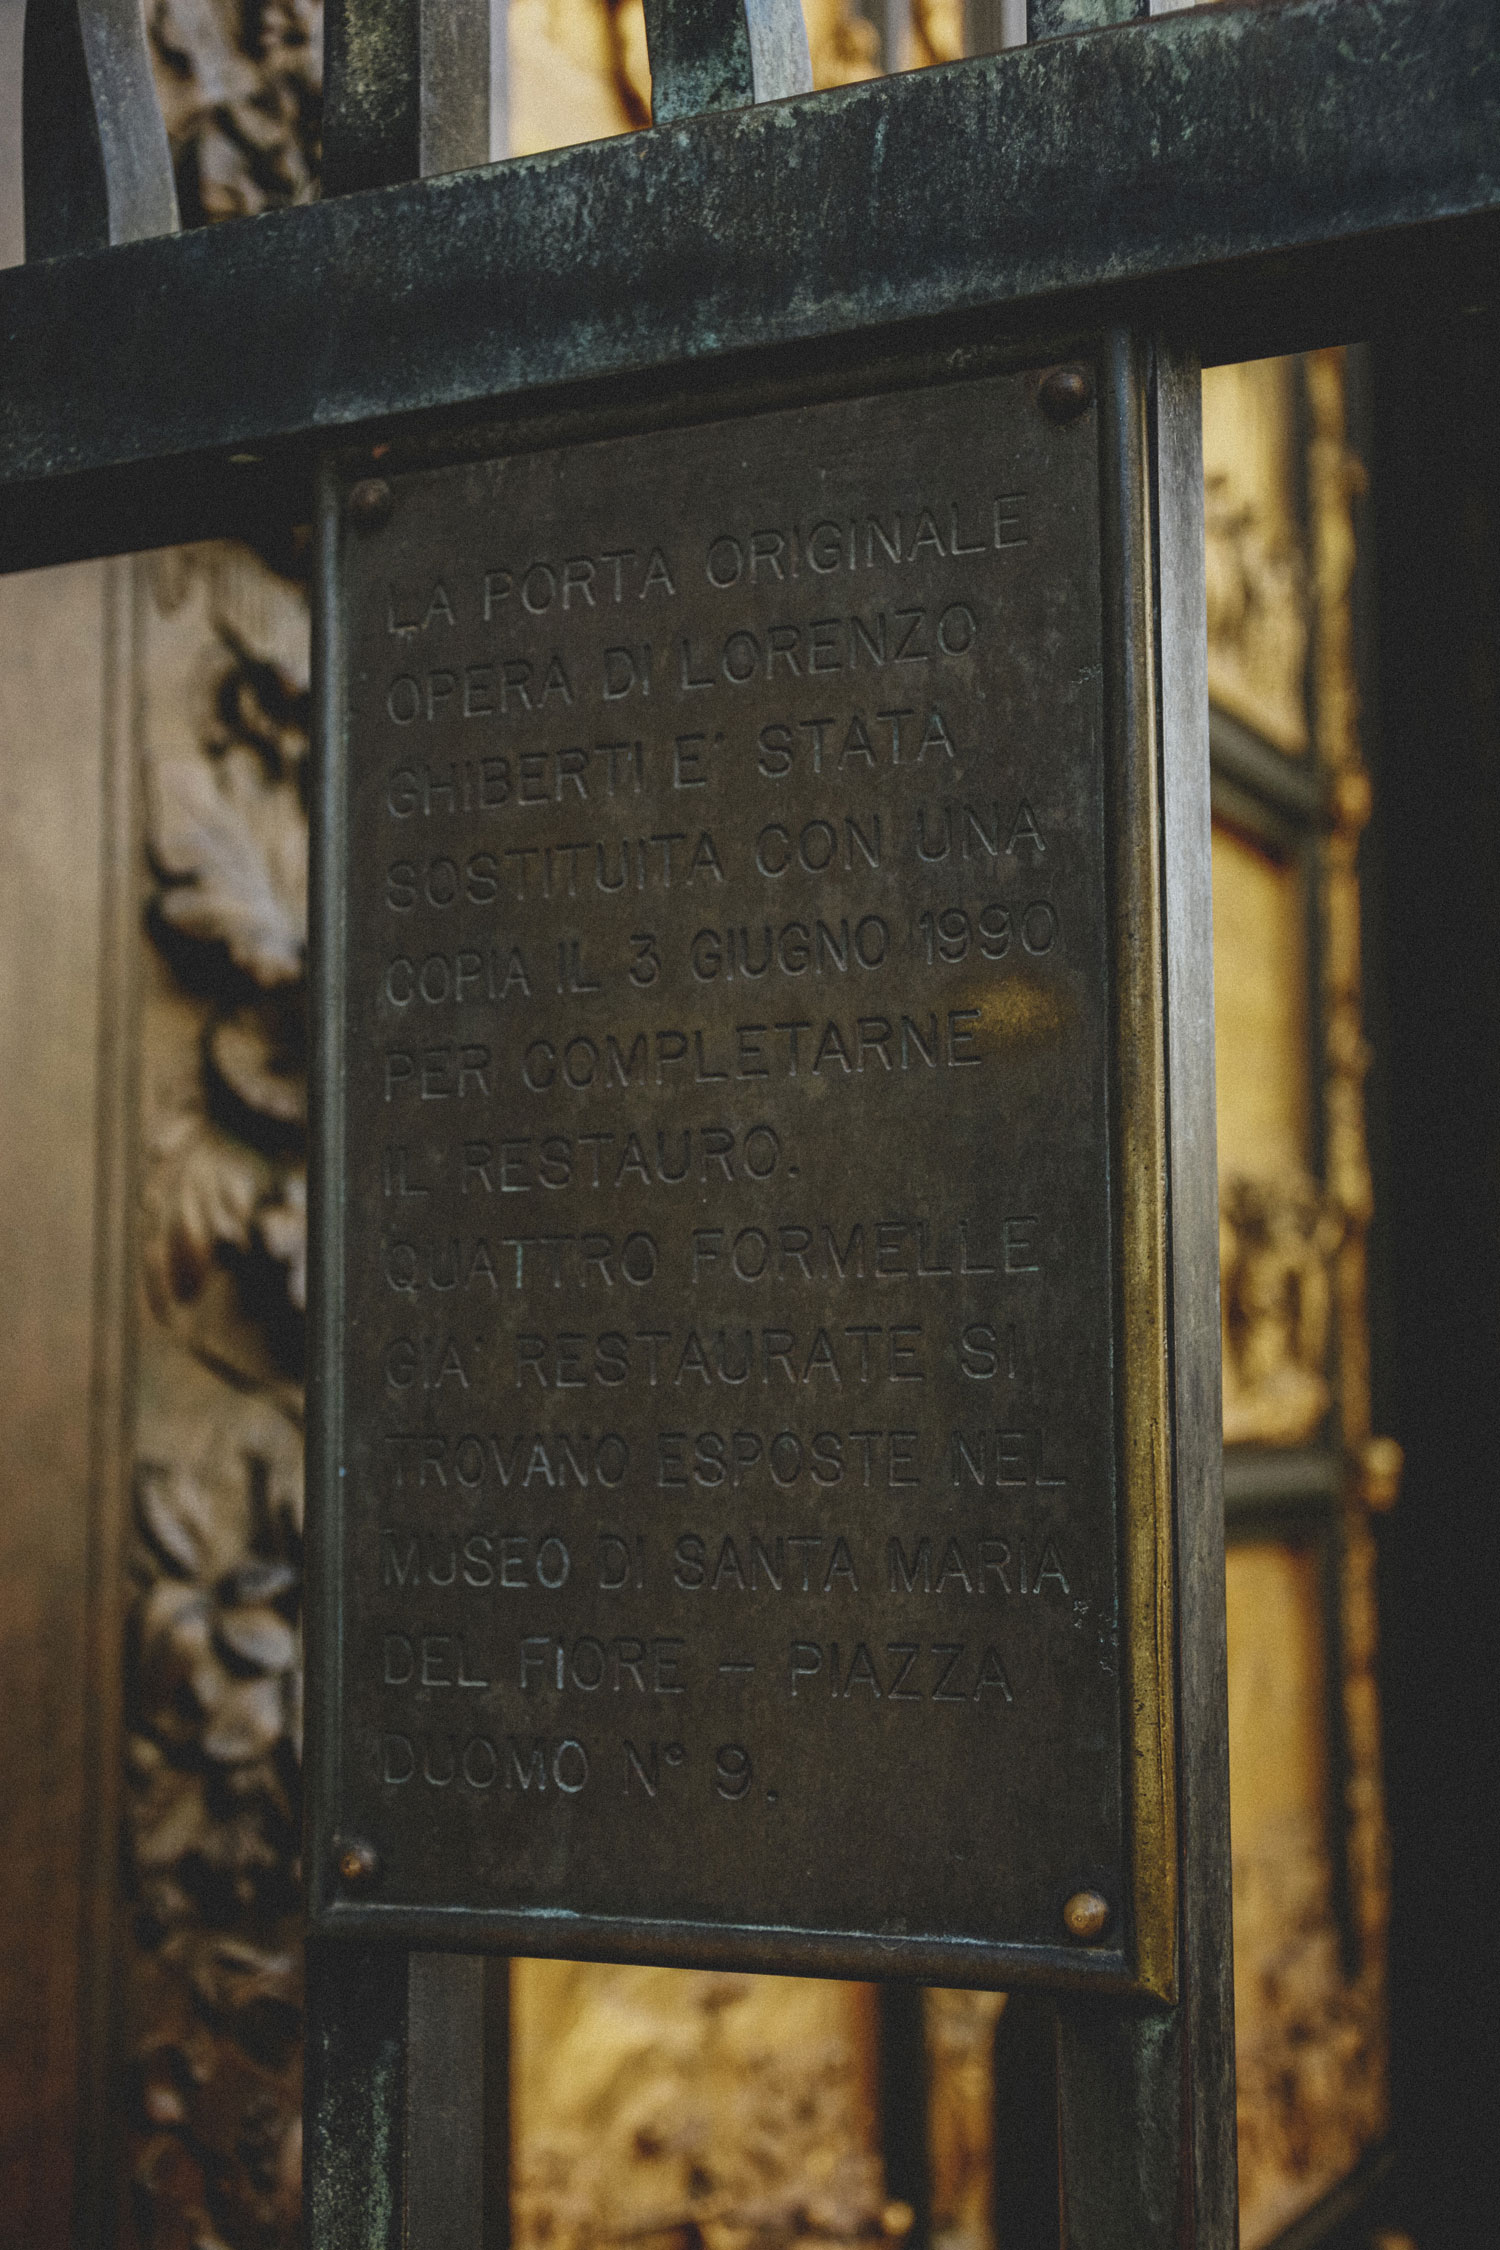 LA PORTA ORIGINALE
OPERA DI LORENZO
GHIBERTI E' STATA
SOSTITUITA CON UNA
COPIA IL 3 GIUGNO 1990
PER COMPLETARNE
IL RESTAURO.
QUATTRO FORMELLE
GIA' RESTAURATE SI
TROVANO ESPOSTE NEL
MUSEO DI SANTA MARIA
DEL FIORE – PIAZZA
DUOMO N° 9.